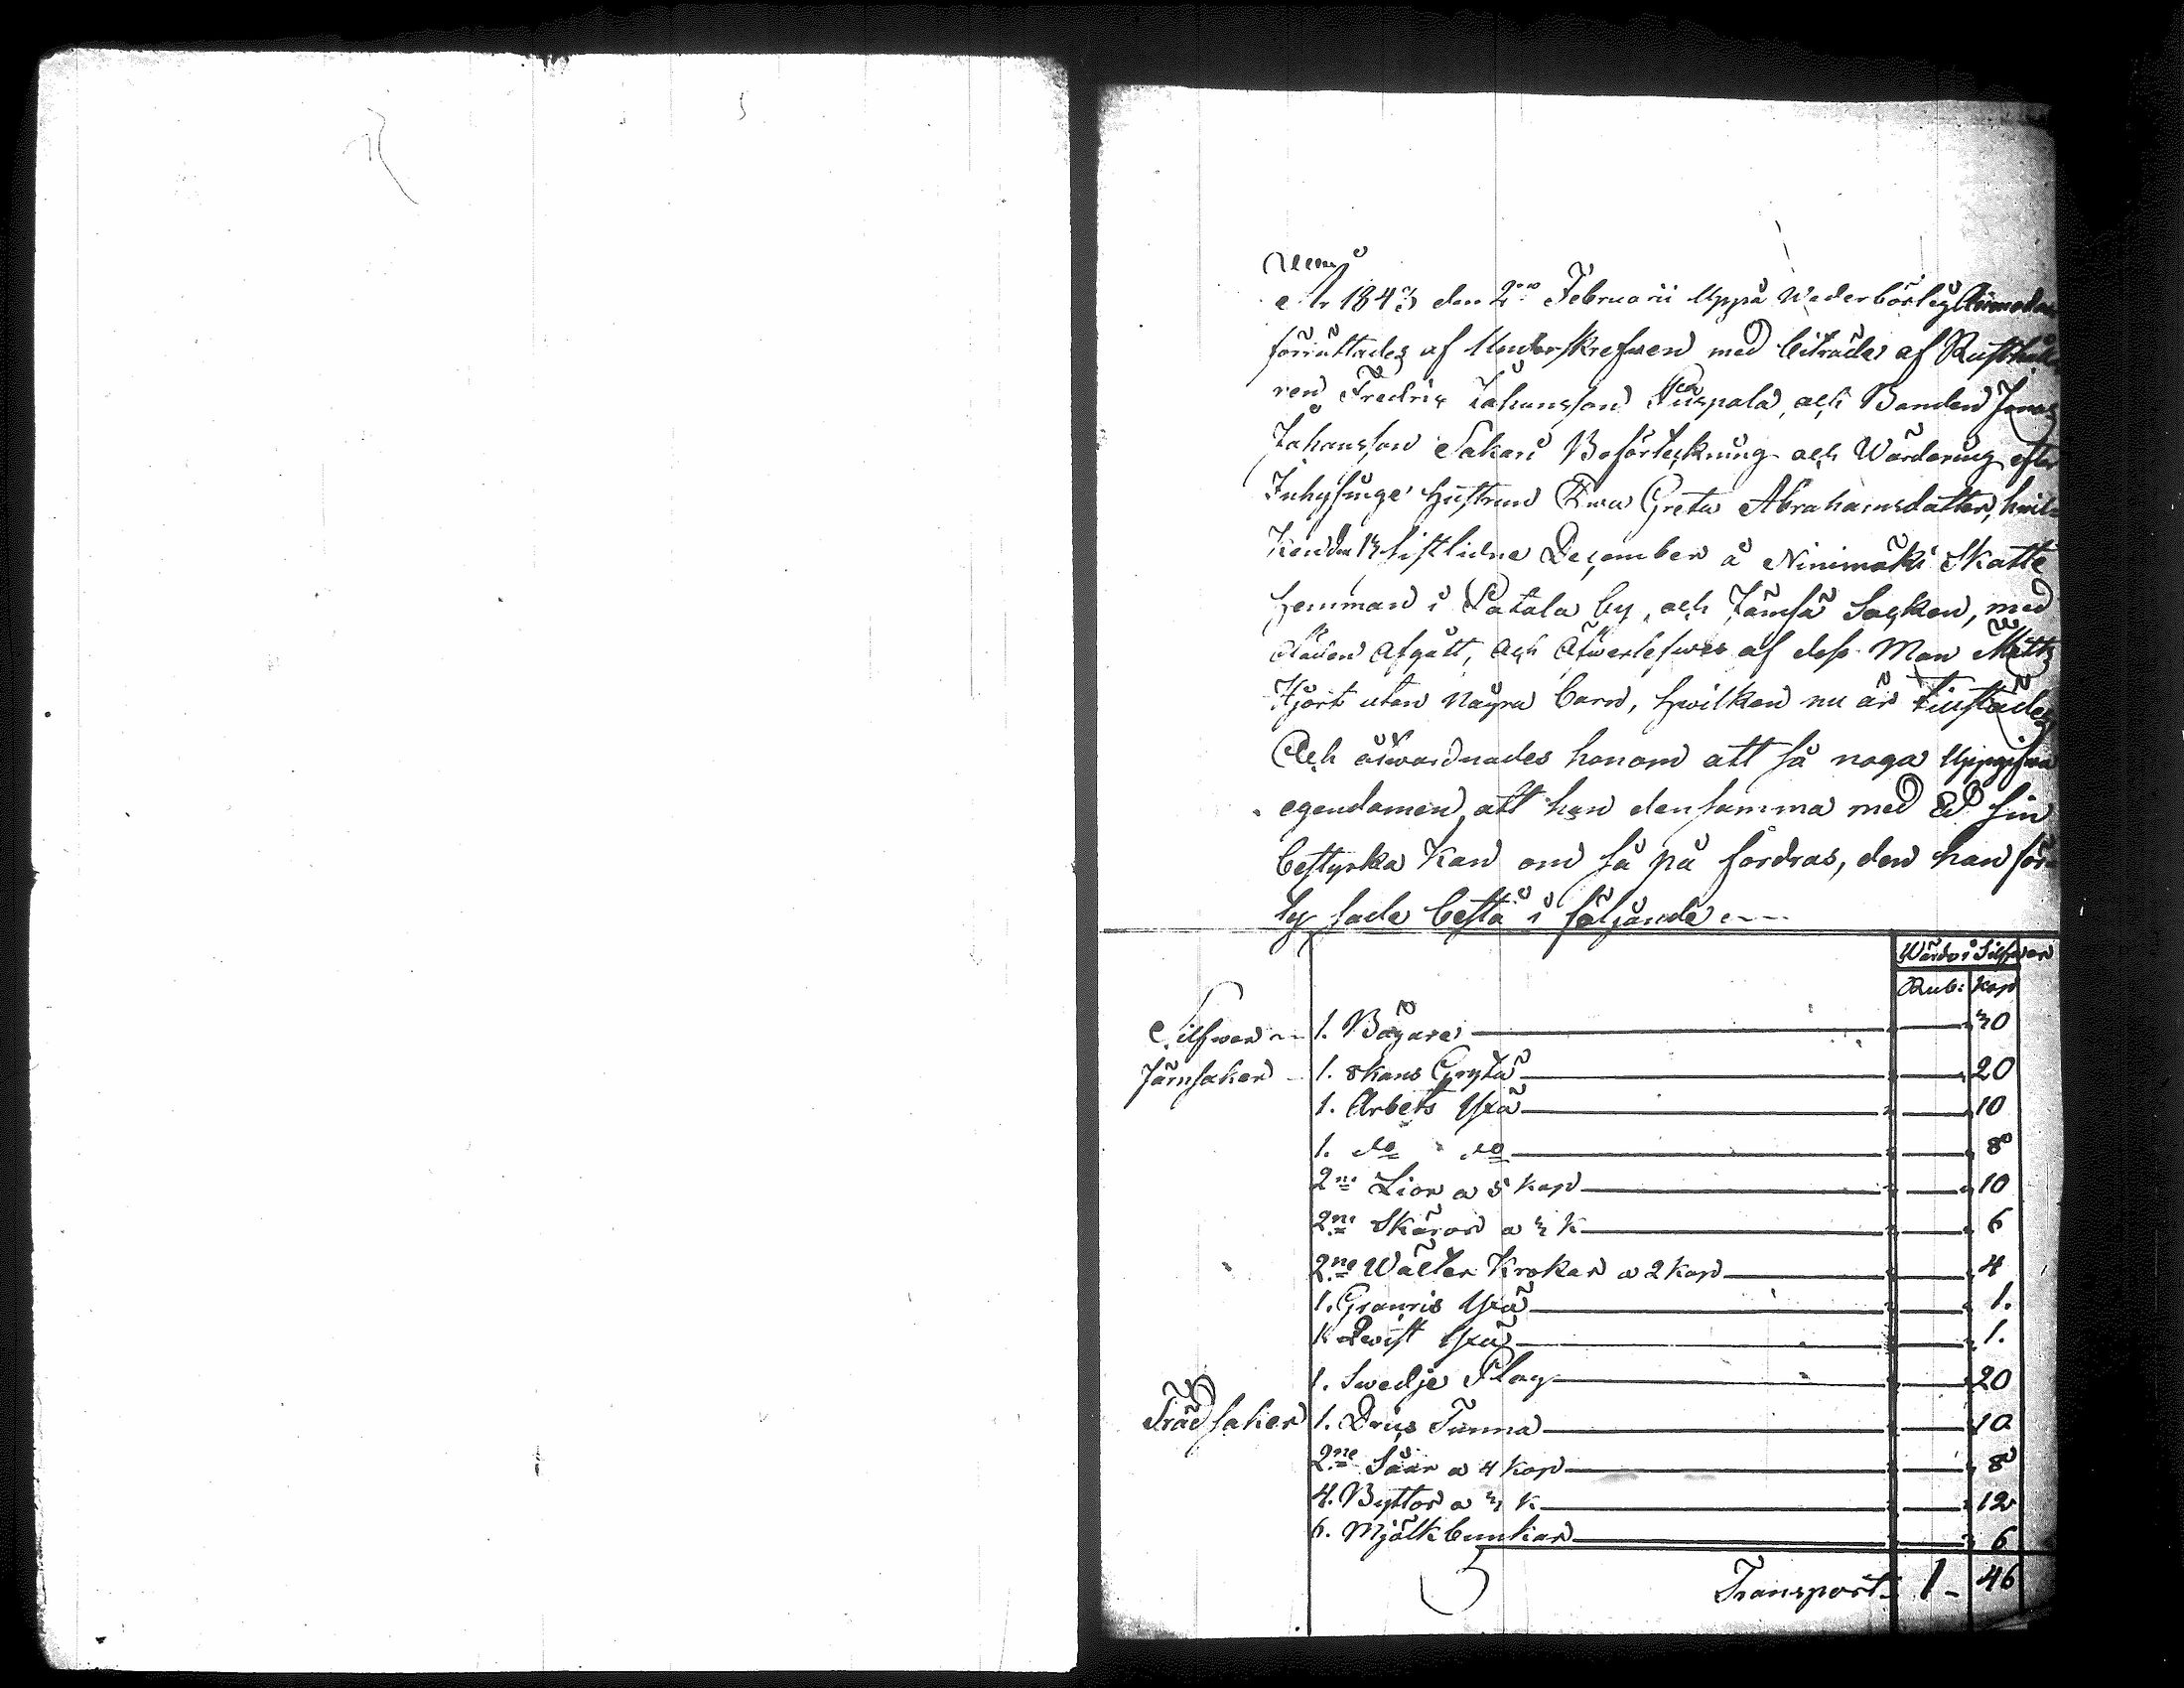 År 1843 den 2ne Februarii uppå Wederbörlig Anmodan
förrättades af Underskrefwen med biträde af Rusthålla
ren Fredric Johansson Puspala, och Bonden Jonas
Johansson Sakari Boförteckning och Wärdering efter
Inhysinge hustrun Ewa Greta Abrahamsdotter, hwil-
ken den 13 sistlidne December å Ninimäki Skatte
hemman i Patala by, och Jämsä Socken, med
döden afgått, och öfwerlefwes af dess Man Matts
Hjort utan några barn, hwilken nu är tillstädes
Och åtwarnades honom att så noga uppgifwa
egendomen, att han densamma med Ed sin
bestyrka kan om så på fordras, den han föl-
ly sade bestå i följande
Wärde i Silfwer
Rub: Kop
Silfwer 1. Bägare 30
Järnsaker 1. Skans Gryta 20
1. Arbets Yxa 10
1. do do 8
2ne Lior a 5 kop 10
2ne Skäror a 3 K 6
2ne Wälter Krokar a 2 kop 4
1. Granris Yxa 1.
1. Qwist Yxa 1.
1. Swedje Plog 20
Trädsaker 1. Drics Tunna 10
2ne Såar a 4 kop 8
4. Byttor a 3 K 12
6. Mjölkbunkar 6
Transport 1 - 46